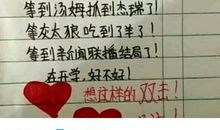 等到汤姆抓到杰瑞了!
等灰太狼吃到了羊了!
等到新闻联播结局了!
在开学,好不好!
想这样的双击!